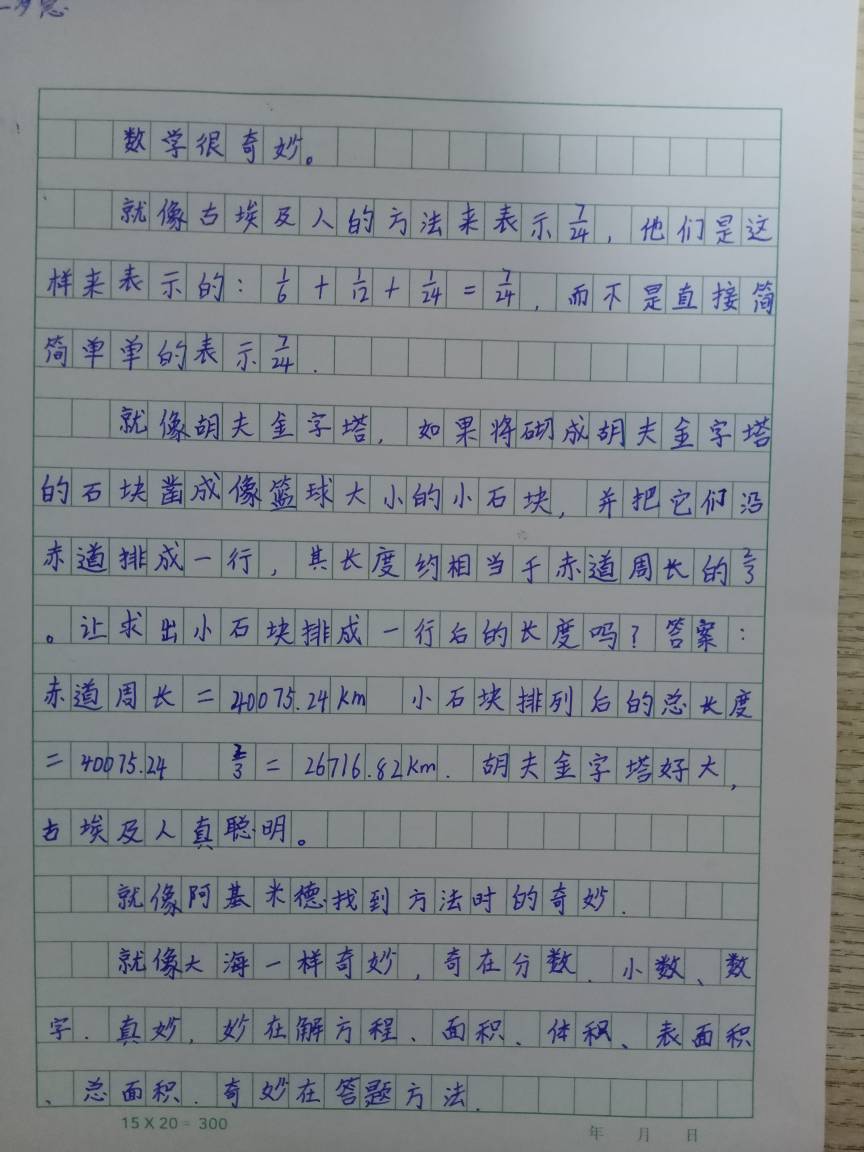 数学很奇妙。
就像古埃及人的方法来表示7/24，他们是这
样来表示的：1/6+1/12+1/24=7/24，而不是直接简
简单单的表示7/24.
就像胡夫金字塔，如果将砌成胡夫金字塔
的石块凿成像篮球大小的小石块，并把它们沿
赤道排成一行，其长度约相当于赤道周长的2/3
。让求出小石块排成一行后的长度吗？答案：
赤道周长=40075.24km 小石块排列后的总长度
=40075.24 2/3=26716.82km.胡夫金字塔好大，
古埃及人真聪明。
就像阿基米德找到方法时的奇妙.
就像大海一样奇妙，奇在分数.小数、数
字.真妙，妙在解方程、面积、体积、表面积
、总面积.奇妙在答题方法.
15×20=300
年 月 日